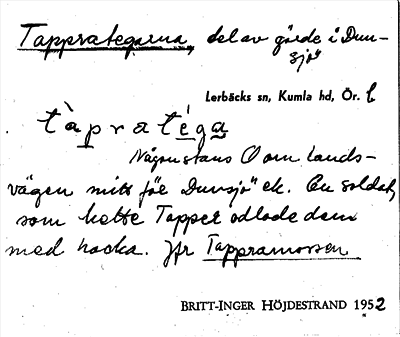 Tapprategarna, del av gärde i Dun-
sjö
Lerbäcks sn, Kumla hd, Ör. l
tàpratéga
Någonstans O om lands-
vägen mitt för Dunsjö ek. En soldat,
som hette Tapper odlade dem
med hacka. Jfr Tappramossen
BRITT-INGER HÖJDESTRAND 1952